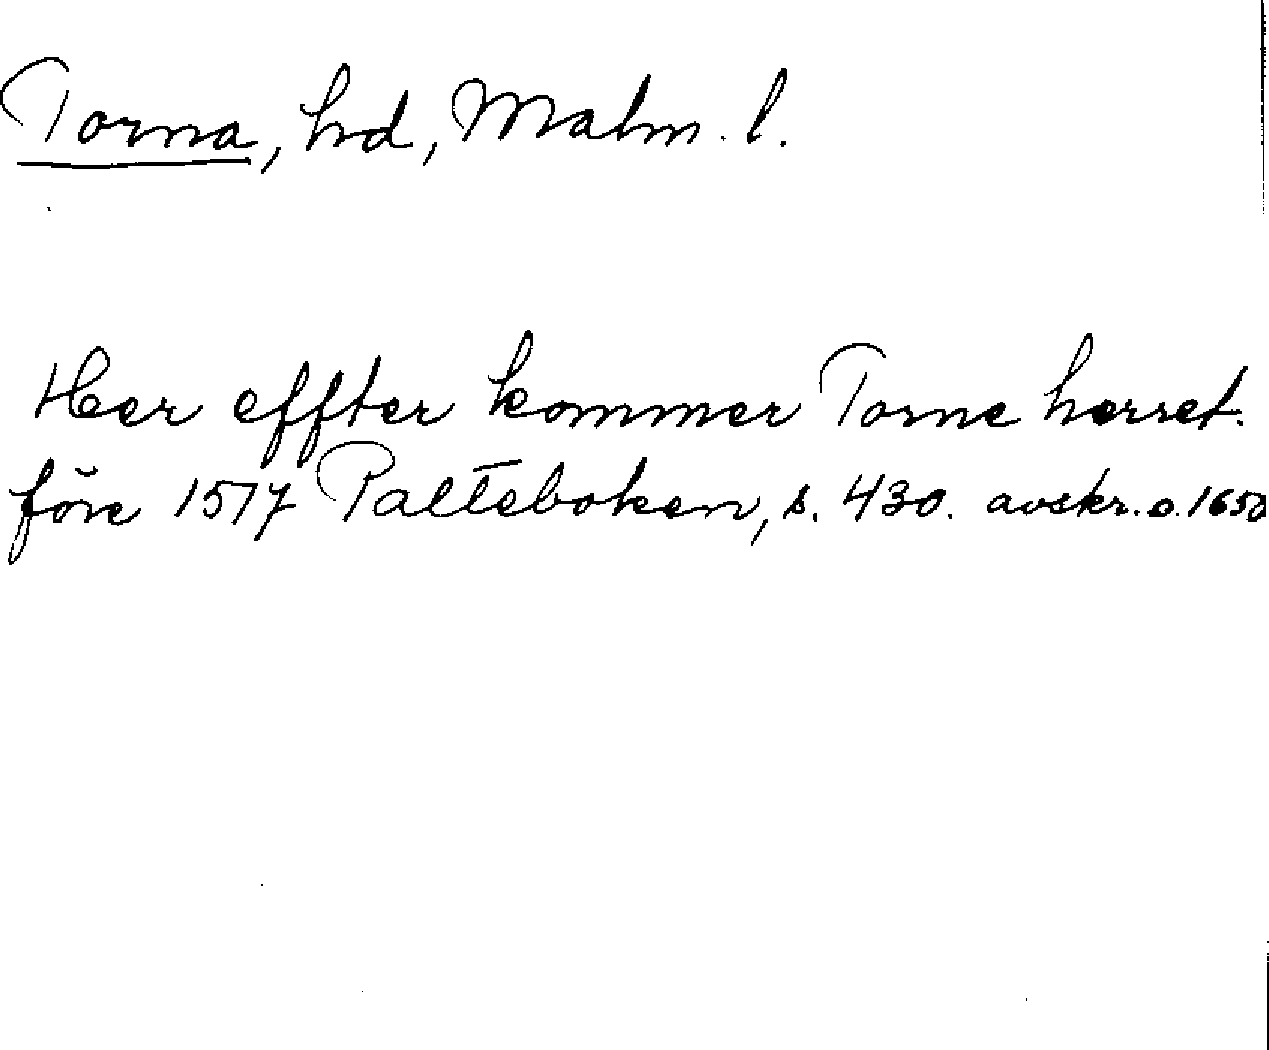 Torna, hd, Malm. l.
Her effter kommer Torne herret.
före 1577 Palteboken, s. 430. avskr. o. 1650